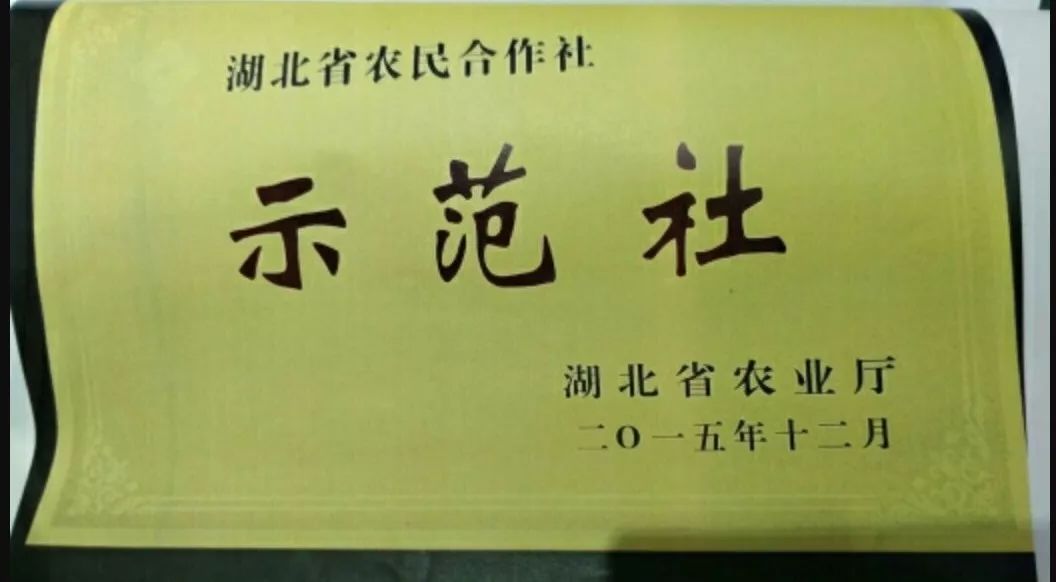 湖北省农民合作社
示范社
湖北省农业厅
二O一五年十二月